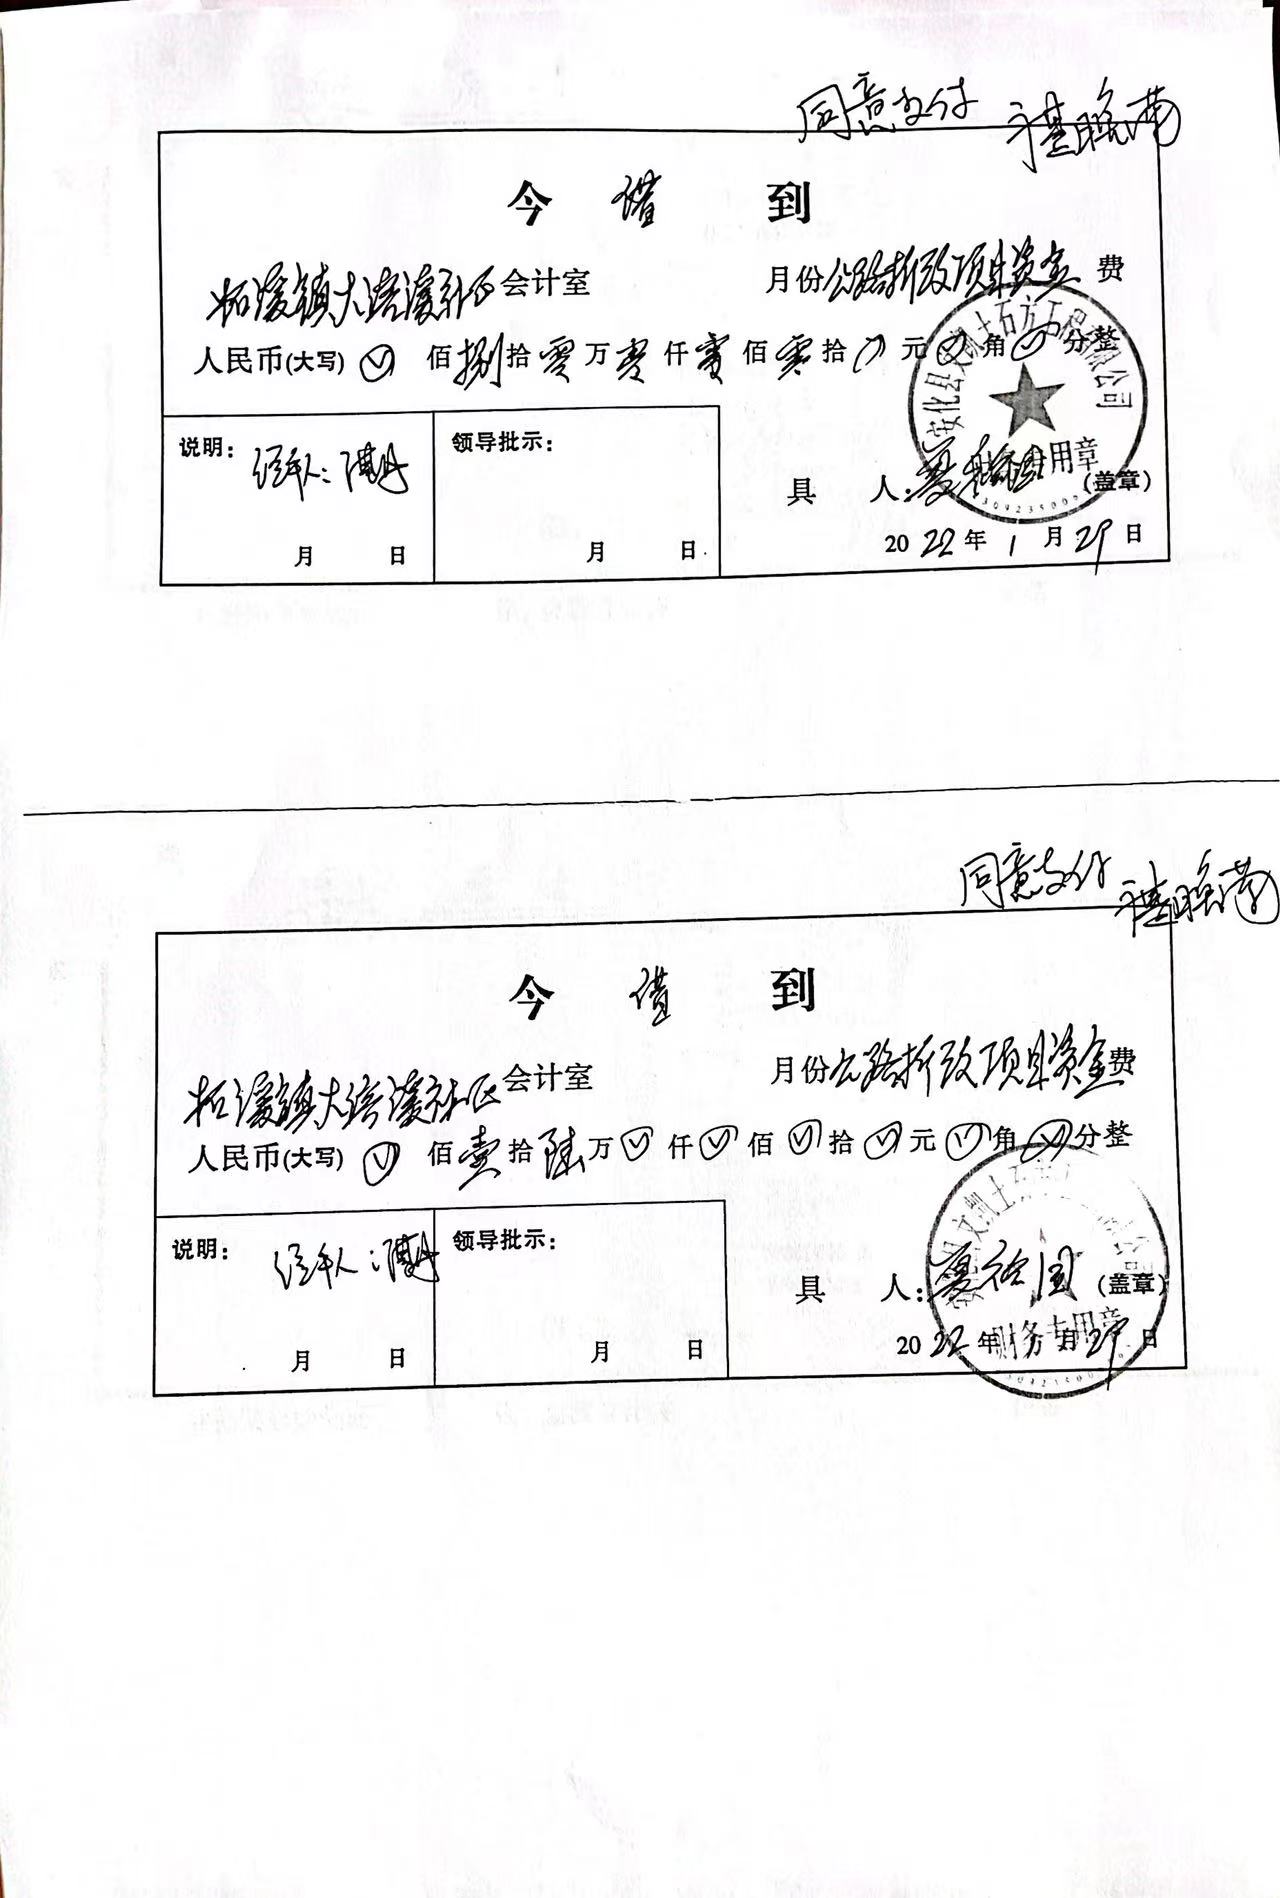 同意支付
今借到
柘溪镇大溶溪社区会计室 月份公路拆改项目资金费
人民币(大写) 佰捌拾零万零仟零佰零拾0元0角0分整
安化县文凯土石方工程有限公司
用章
说明: 经手人:
领导批示:
具 人: (盖章)
月 日
月 日
2022年1月29日
同意支付
今借到
柘溪镇大溶溪社区会计室 月份公路拆改项目资金费
人民币(大写) 0佰壹拾陆万0仟0佰0拾0元0角0分整
文凯土石
财务专用章
说明: 经手人:
领导批示:
具 人: (盖章)
月 日
月 日
2022年 月29日